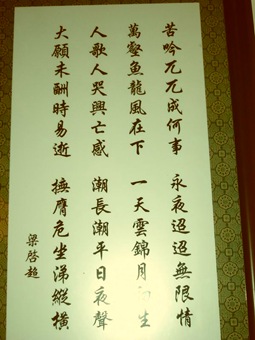 苦吟兀兀成何事 永夜迢迢無限情
萬壑魚龍風在下 一天雲錦月 生
人歌人哭興亡感 潮長潮平日夜聲
大願未酬時易逝 撫膺危坐涕縱橫
梁啓超